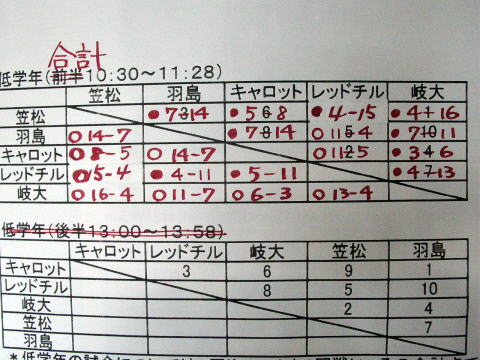 合計
低学年(前半10:30～11:28)
笠松 羽島 キャロット レッドチル 岐大
笠松 ●7314 ●568 ●4-15 ●4+16
羽島 ○14-7 ●7814 ○1154 ●71011
キャロット ○8-5 ○14-7 ○1125 ●346
レッドチル ○15-4 ●4-11 ●5-11 ●4713
岐大 ○16-4 ○11-7 ○6-3 ○13-4
低学年(後半13:00～13:58)
キャロット レッドチル 岐大 笠松 羽島
キャロット 3 6 9 1
レッドチル 8 5 10
岐大 2 4
笠松 7
羽島